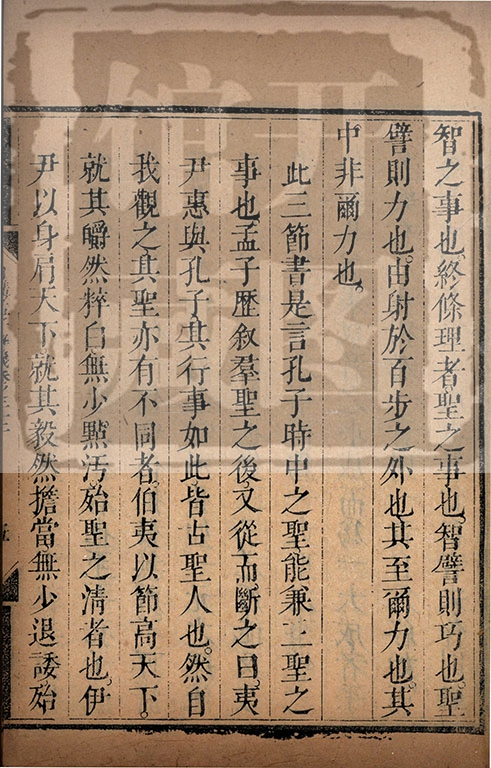 智之事也。終條理者。聖之事也。智譬則巧也。聖
譬則力也。由射於百步之外也。其至爾力也。其
中非爾力也。
此三節書是言孔子時中之聖。能兼三聖之
事也。孟子歷叙羣聖之後。又從而斷之曰。夷
尹惠與孔子。其行事如此。皆古聖人也。然自
我觀之。其聖亦有不同者。伯夷以節高天下。
就其皭然粹白無少點汚。殆聖之清者也。伊
尹以身肩天下。就其毅然擔當無少退諉。殆
五